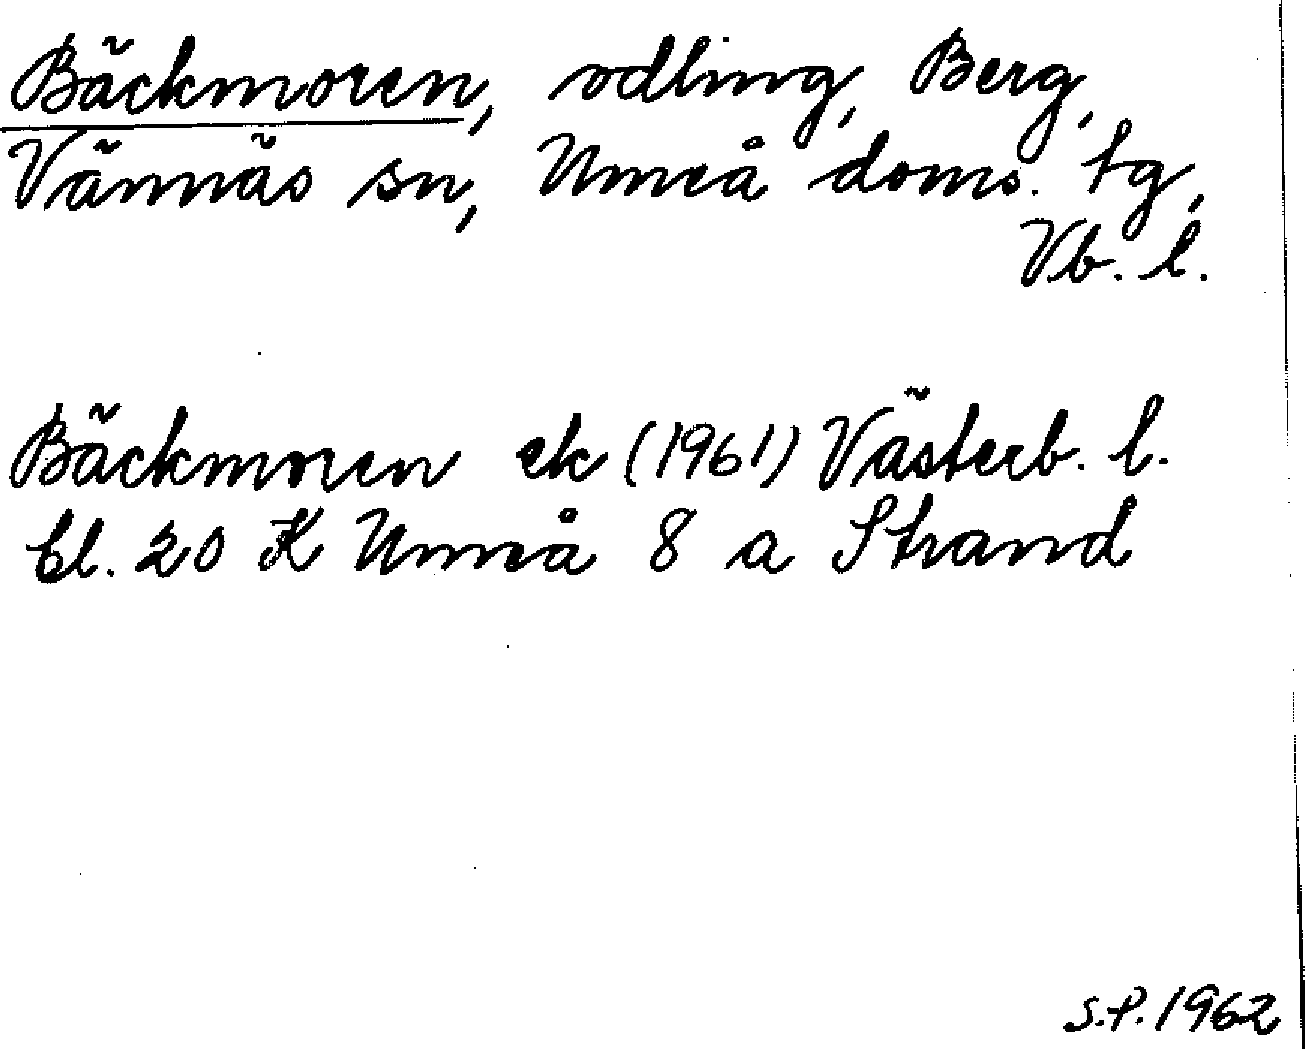 Bäckmoren, odling, Berg,
Vännäs sn, Umeå doms. tg,
Vb. l.
Bäckmoren ek (1961) Västerb. l.
bl. 20 K Umeå 8 a Strand
S.P. 1962